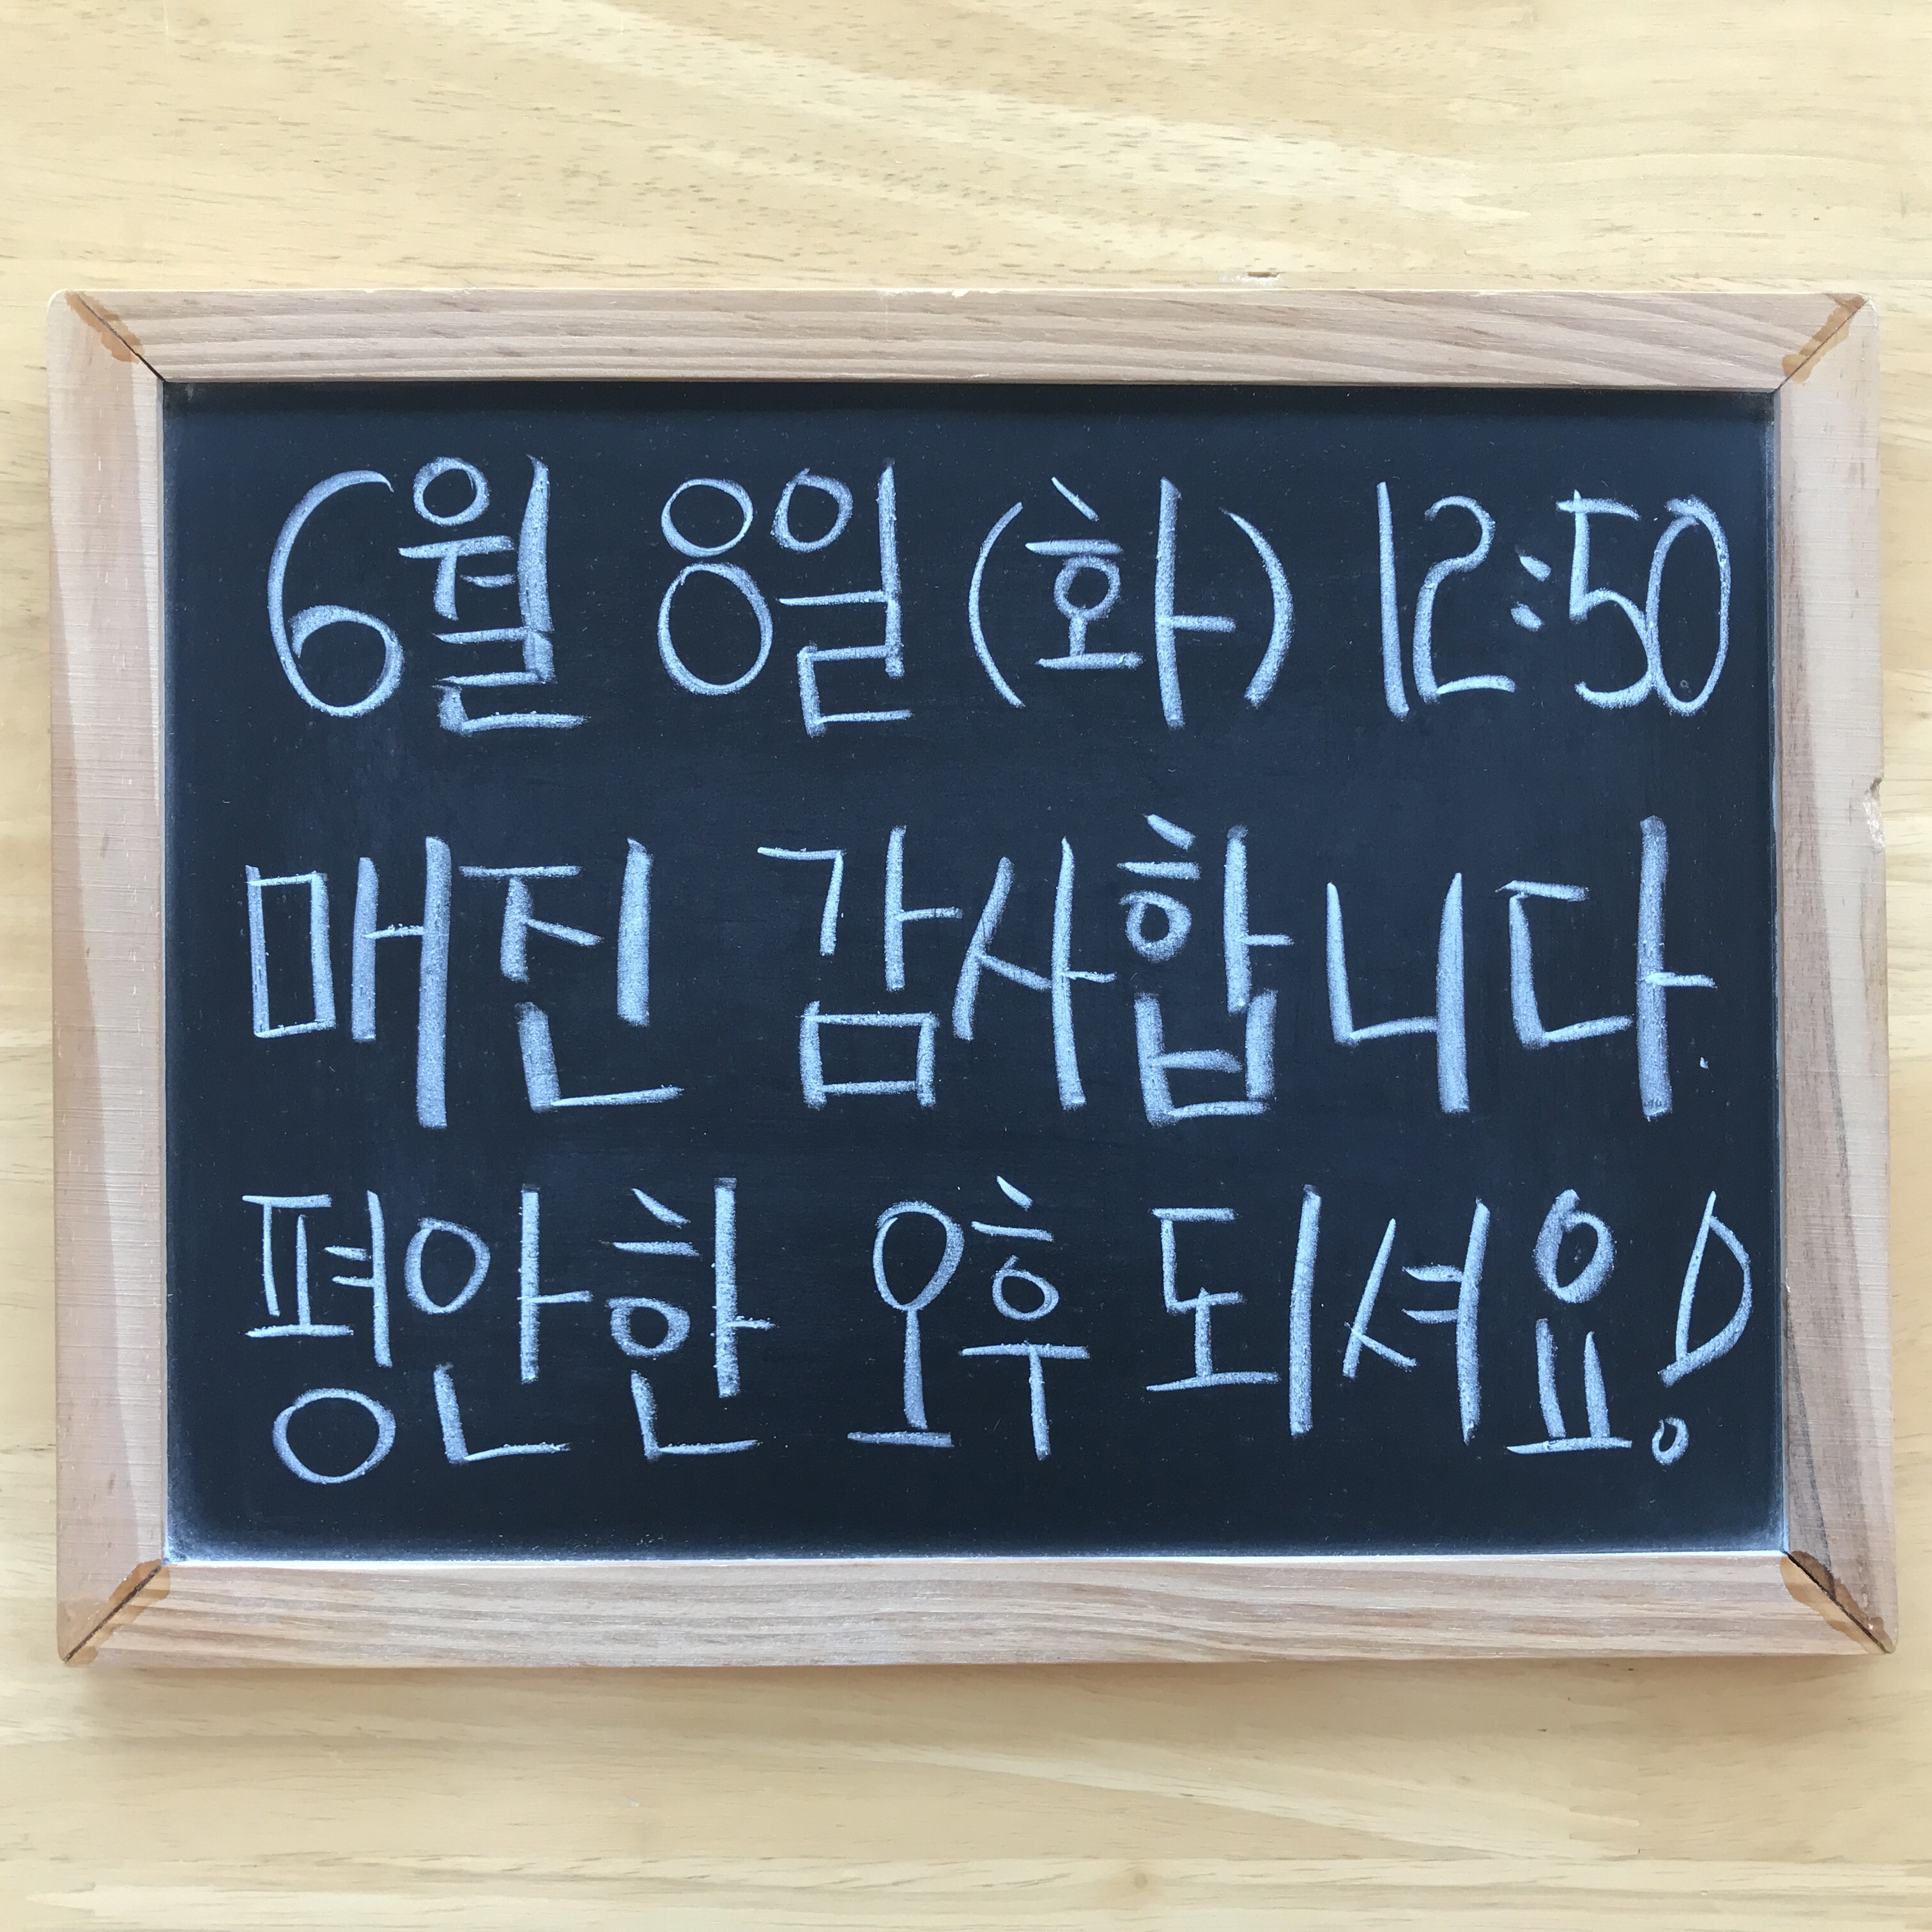 6월 8일 (화) 12:50
매진 감사합니다.
평안한 오후 되셔요!